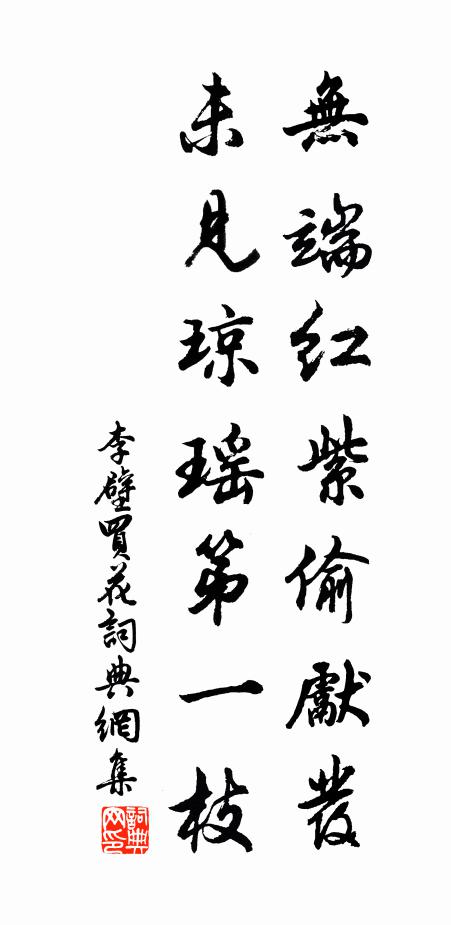 無端紅紫偷獻發
未見琼瑶第一枝
李壁買花詞典網集
詞典网印